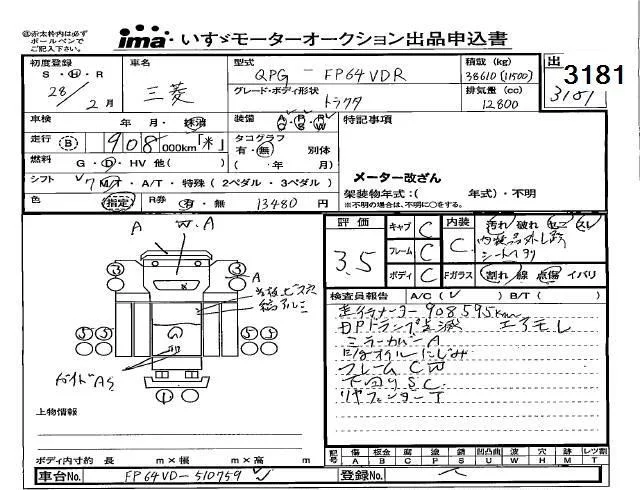 ㊟赤太枠内は必ず
ボールペンで
ご記入下さい。
ima いすゞモーターオークション出品申込書
初度登録 車名 型式 積載 (kg) 出
S・H・R 三菱 QPG-FP64VDR 38610 (11500) 3181
28/2月 グレード・ボディ形状 トラクタ 排気量 (cc) 12800 3181
車検 年・月・抹消 装備 A/C P/S P/W 特記事項
走行 B 908 000km「米」 タコグラフ 有・無 別体
燃料 G・D・HV 他( ) ( 年・ 月)
シフト 7 M/T・A/T・特殊 (2ペダル・3ペダル) メーター改ざん
色 指定 R券 有・無 13480 円 架装物年式:( 年式)・不明
※不明の場合は、不明に○をする。
評価 3.5
キャブ C 内装 C 汚れ 破れ コゲ スレ
フレーム C
ボディ C Fガラス 割れ・線 点傷・イバリ
A W.A
3 3 A
5 5 5 5
1
検査員報告 A/C ( ) B/T ( )
走行メーター908595km
DPDランプ点滅 エアモレ
ミラーカバーA
フレームCW
下回りSC
リヤフェンダーT
上物情報
ボディ内寸約 長 m×幅 m×高 m
記号 傷 板金 腐 塗 錆 凸凹曲 波 穴 跡 レツ割
A B C P S U W H M T
車台No. FP64VD-510759 登録No.